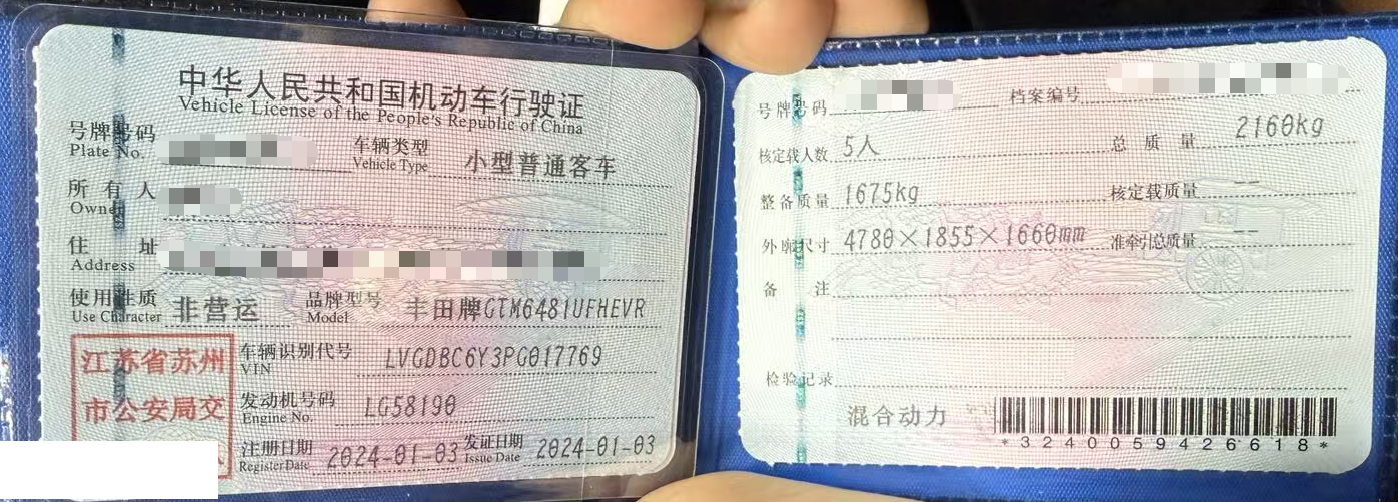 中华人民共和国机动车行驶证
Vehicle License of the People's Republic of China
号牌号码
Plate No.
车辆类型
Vehicle Type
小型普通客车
所有人
Owner
住址
Address
使用性质
Use Character
非营运
品牌型号
Model
丰田牌GTM6481UFHEVR
江苏省苏州
市公安局交
车辆识别代号
VIN
LVGDBC6Y3PG017769
发动机号码
Engine No.
LG58190
注册日期
Register Date
2024-01-03
发证日期
Issue Date
2024-01-03
号牌号码
档案编号
核定载人数 5人
总质量 2160kg
整备质量 1675kg
核定载质量 --
外廓尺寸 4780×1855×1660mm
准牵引总质量 --
备注
检验记录
混合动力
*3240059426618*